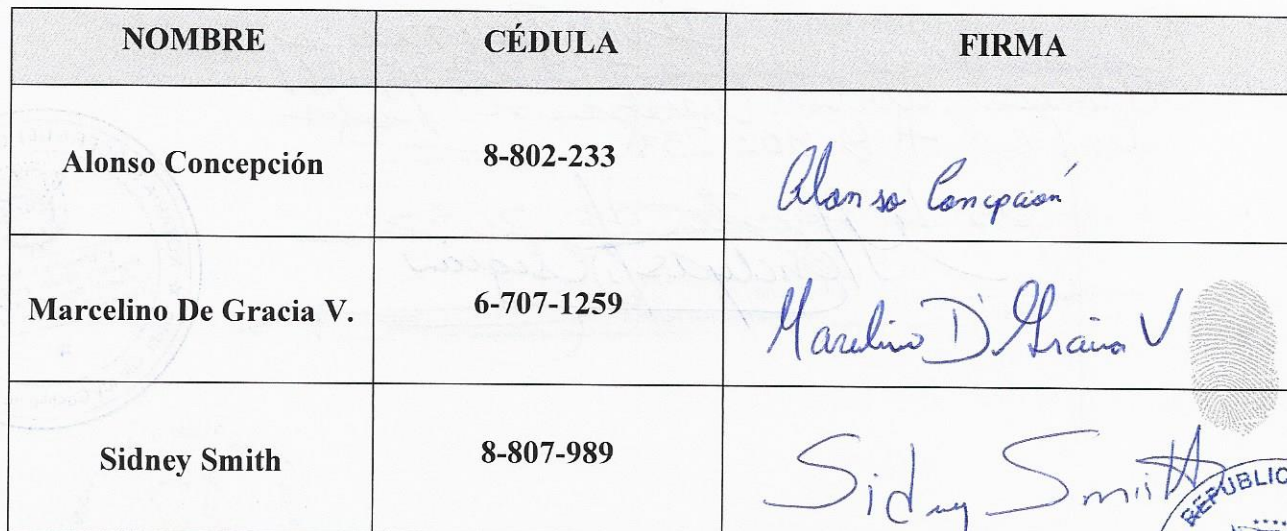 NOMBRE CÉDULA FIRMA
Alonso Concepción 8-802-233 Alonso Concepción
Marcelino De Gracia V. 6-707-1259 Marcelino D' Gracia V
Sidney Smith 8-807-989 Sidney Smith
REPÚBLIC